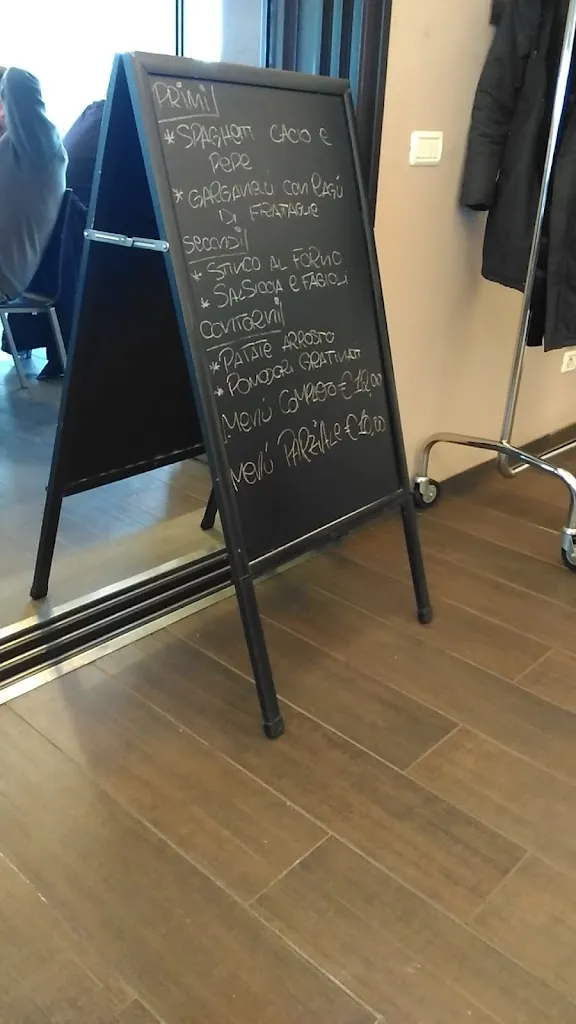 PRIMI
* SPAGHETI CACIO E
PEPE
* GARGANELLI CON RAGÙ
DI FRATAGLIE
SECONDI
* STINCO AL FORNO
* SALSICCIA E FAGIOLI
CONTORNI
* PATATE ARROSTO
* POMODORI GRATINATI
MENÙ COMPLETO € 12,00
MENÙ PARZIALE € 10,00